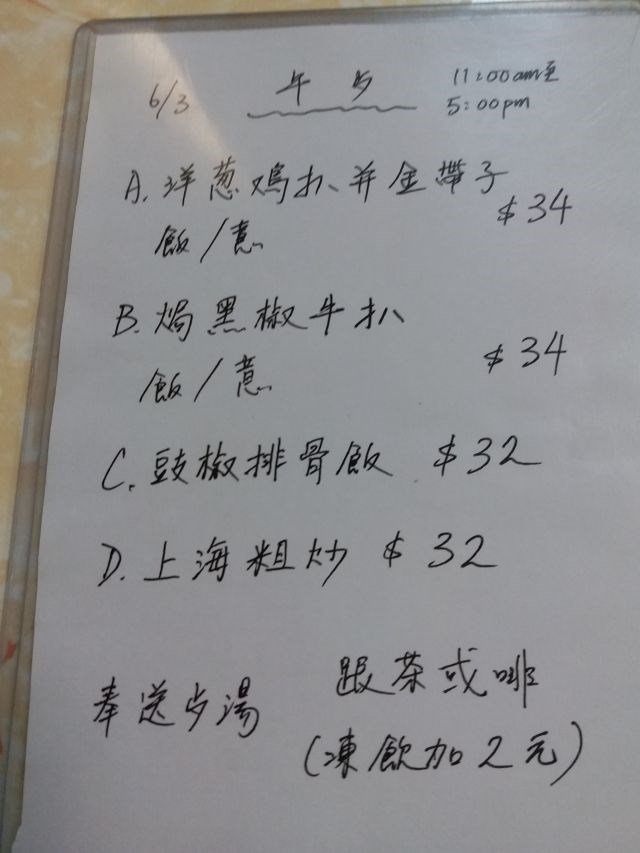 6/3 午歺 11:00am至
5:00pm
A. 洋葱鸡扒、并金帶子
飯/意 $34
B. 焗黑椒牛扒
飯/意 $34
C. 豉椒排骨飯 $32
D. 上海粗炒 $32
奉送歺湯 跟茶或啡
(凍飲加2元)